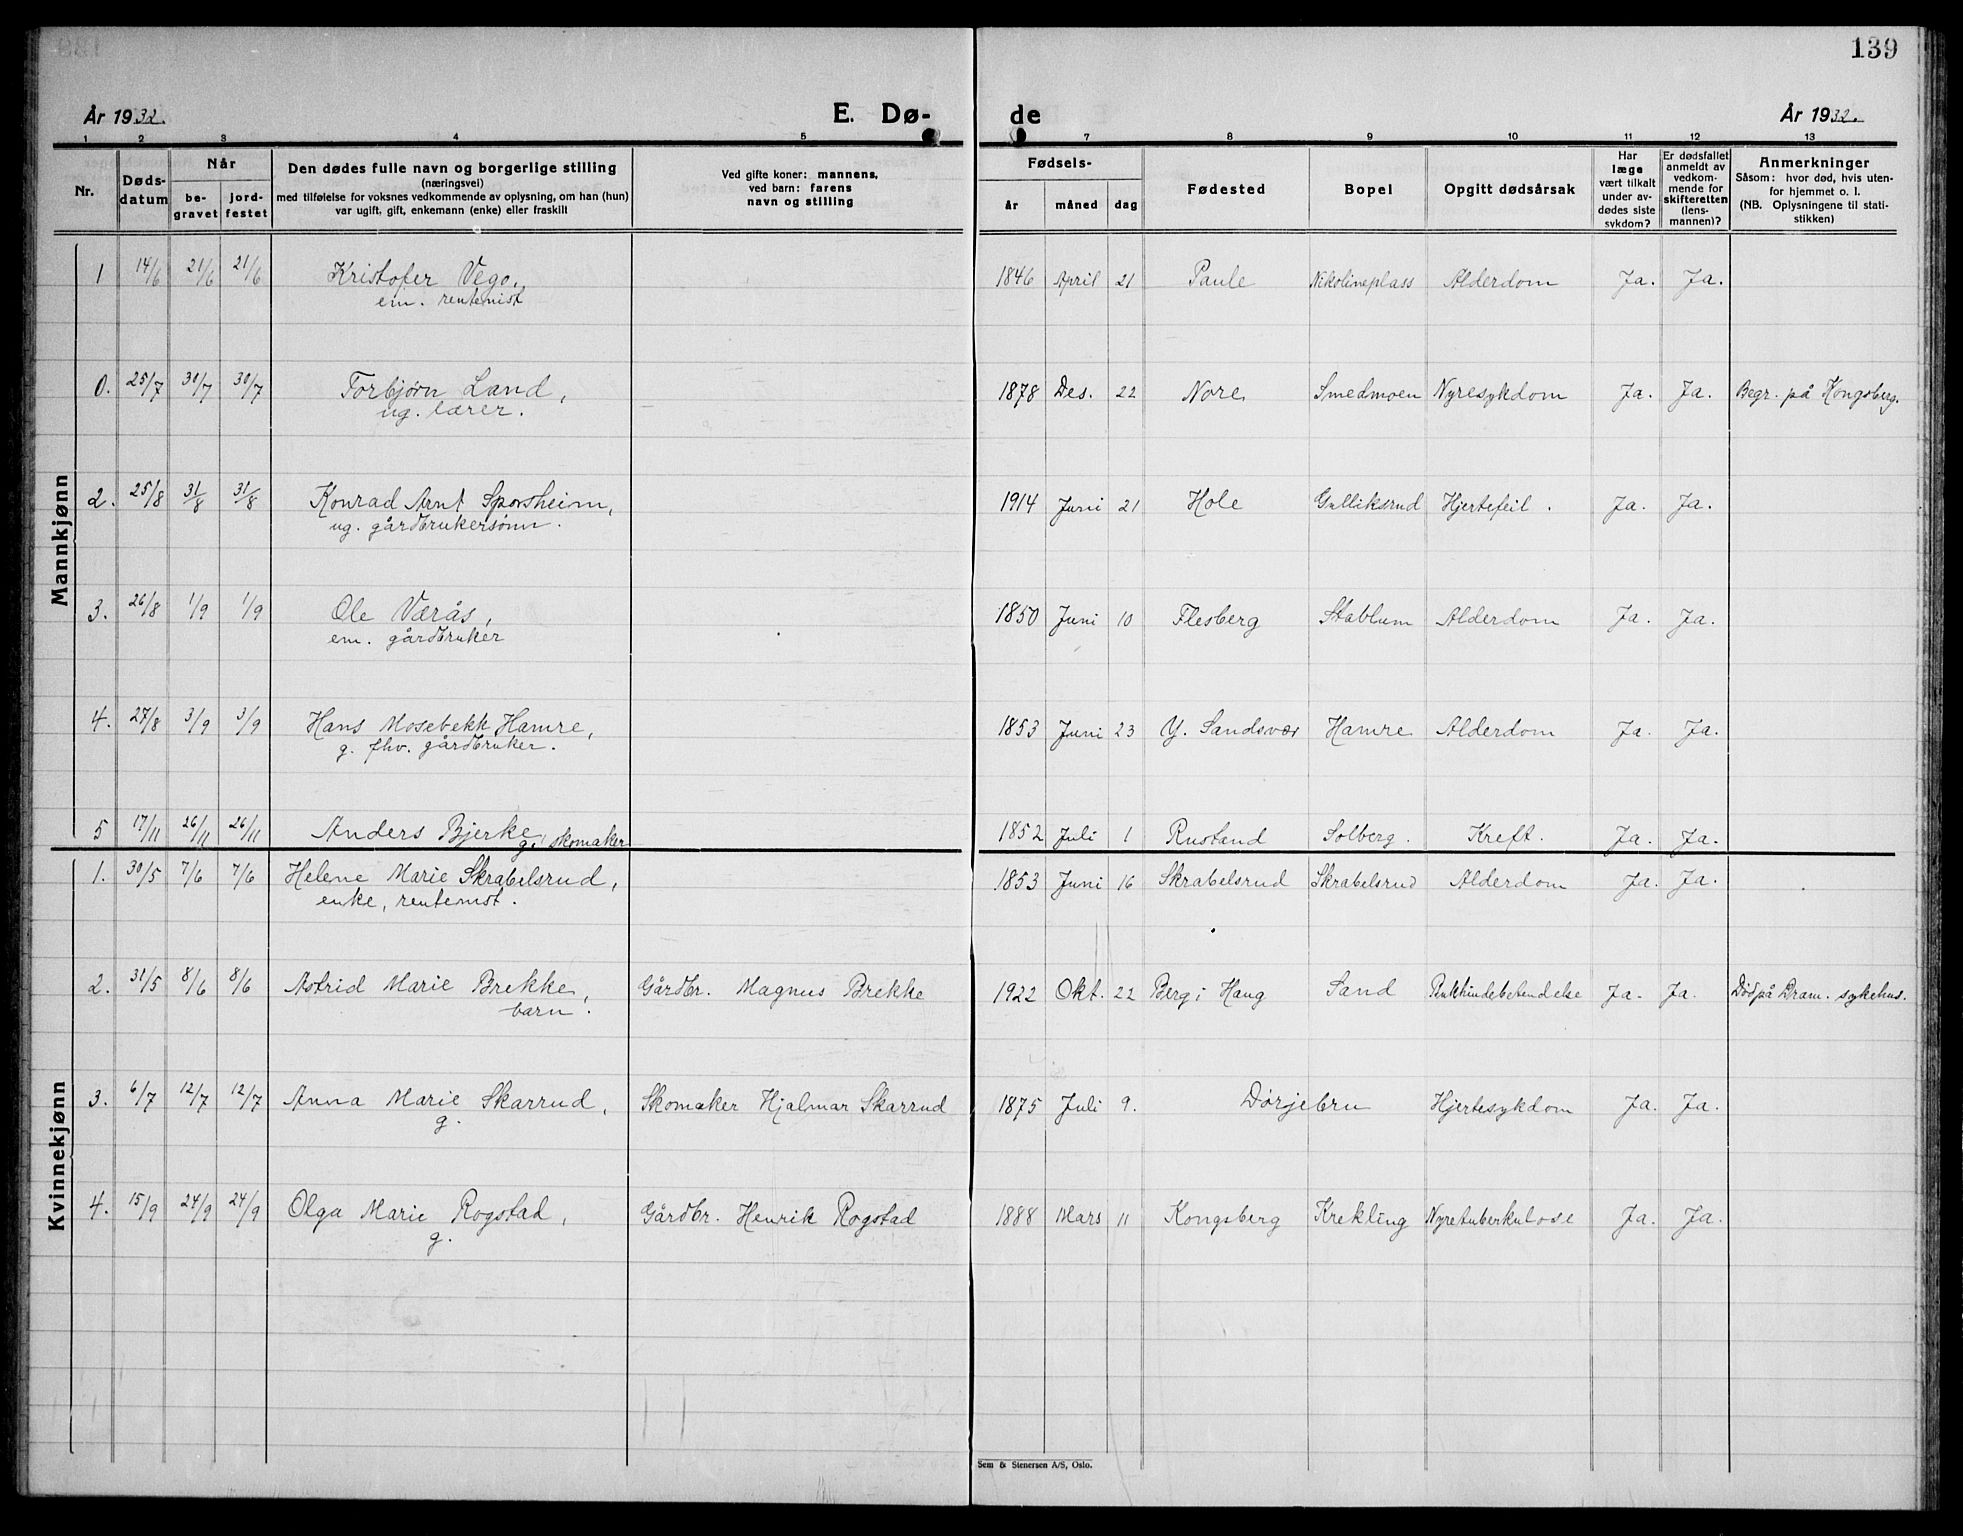 139
År 1932. E. Dø- de År 1932.
1 2 3 4 5 7 8 9 10 11 12 13
Nr. Døds-datum Når be-gravet jord-festet Den dødes fulle navn og borgerlige stilling (næringsvei) med tilføielse for voksnes vedkommende av oplysning, om han (hun) var ugift, gift, enkemann (enke) eller fraskilt Ved gifte koner: mannens, ved barn: farens navn og stilling Fødsels- år måned dag Fødested Bopel Opgitt dødsårsak Har læge vært tilkalt under av-dødes siste sykdom? Er dødsfallet anmeldt av vedkom-mende for skifteretten (lens-mannen)? Anmerkninger Såsom: hvor død, hvis uten-for hjemmet o. l. (NB. Oplysningene til stati-stikken)
Mannkjønn
1 14/6 21/6 21/6 Kristofer Vego, 1846 April 21 Paule Nikolineplass Alderdom Ja. Ja.
em. rentenist
0. 25/7 30/7 30/7 Torbjørn Land, 1878 Des. 22 Nore Smedmoen Nyresykdom Ja. Ja. Begr. på Kongsberg.
ug. lærer.
2. 25/8 31/8 31/8 Konrad Arnt Sporsheim, 1914 Juni 21 Hole Gulliksrud Hjertefeil. Ja. Ja.
ug. gårdbrukersønn.
3. 26/8 1/9 1/9 Ole Værås, 1850 Juni 10 Flesberg Stablum Alderdom Ja. Ja.
em. gårdbruker
4. 27/8 3/9 3/9 Hans Mosebekk Hamre, 1853 Juni 23 Y. Sandsvær Hamre Alderdom Ja. Ja.
g. fhv. gårdbruker.
5 17/11 26/11 26/11 Anders Bjerke, 1852 Juli 1 Rustand Solberg. Kreft. Ja. Ja.
g. skomaker
Kvinnekjønn
1. 30/5 7/6 7/6 Helene Marie Skrabelsrud, 1853 Juni 16 Skrabelsrud Skrabelsrud Alderdom Ja. Ja.
enke, rentenist.
2. 31/5 8/6 8/6 Astrid Marie Brekke, Gårdbr. Magnus Brekke 1922 Okt. 22 Berg i Haug Sand Bukhindebetendelse Ja. Ja. Død på Dram. sykehus.
barn.
3. 6/7 12/7 12/7 Anna Marie Skarrud, Skomaker Hjalmar Skarrud 1875 Juli 9. Dørjebru Hjertesykdom Ja. Ja.
g.
4. 15/9 24/9 24/9 Olga Marie Rogstad, Gårdbr. Henrik Rogstad 1888 Mars 11 Kongsberg Krekling Nyretuberkulose Ja. Ja.
g.
Sem & Stenersen A/S, Oslo.